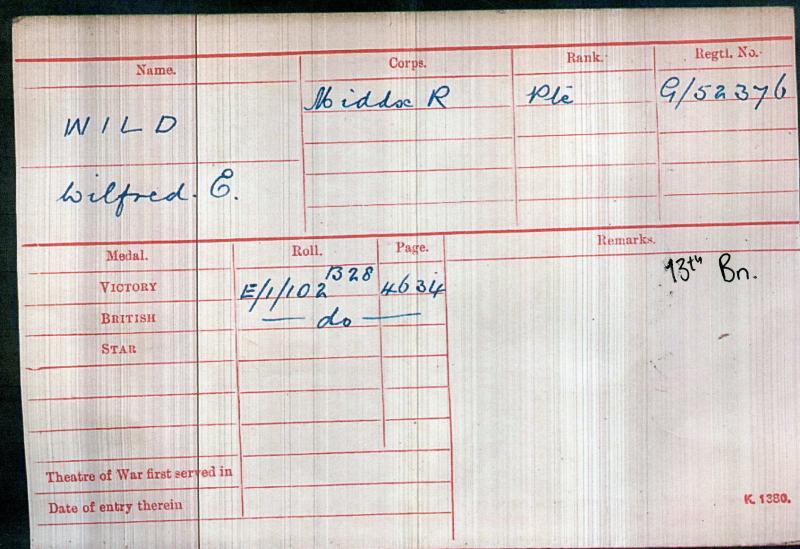 Name. Corps. Rank. Regtl. No.
WILD Middx R Pte G/52376
Wilfred. E.
Medal. Roll. Page. Remarks.
VICTORY E/1/102 B28 4634 13th Bn.
BRITISH — do —
STAR
Theatre of War first served in
Date of entry therein
K. 1380.